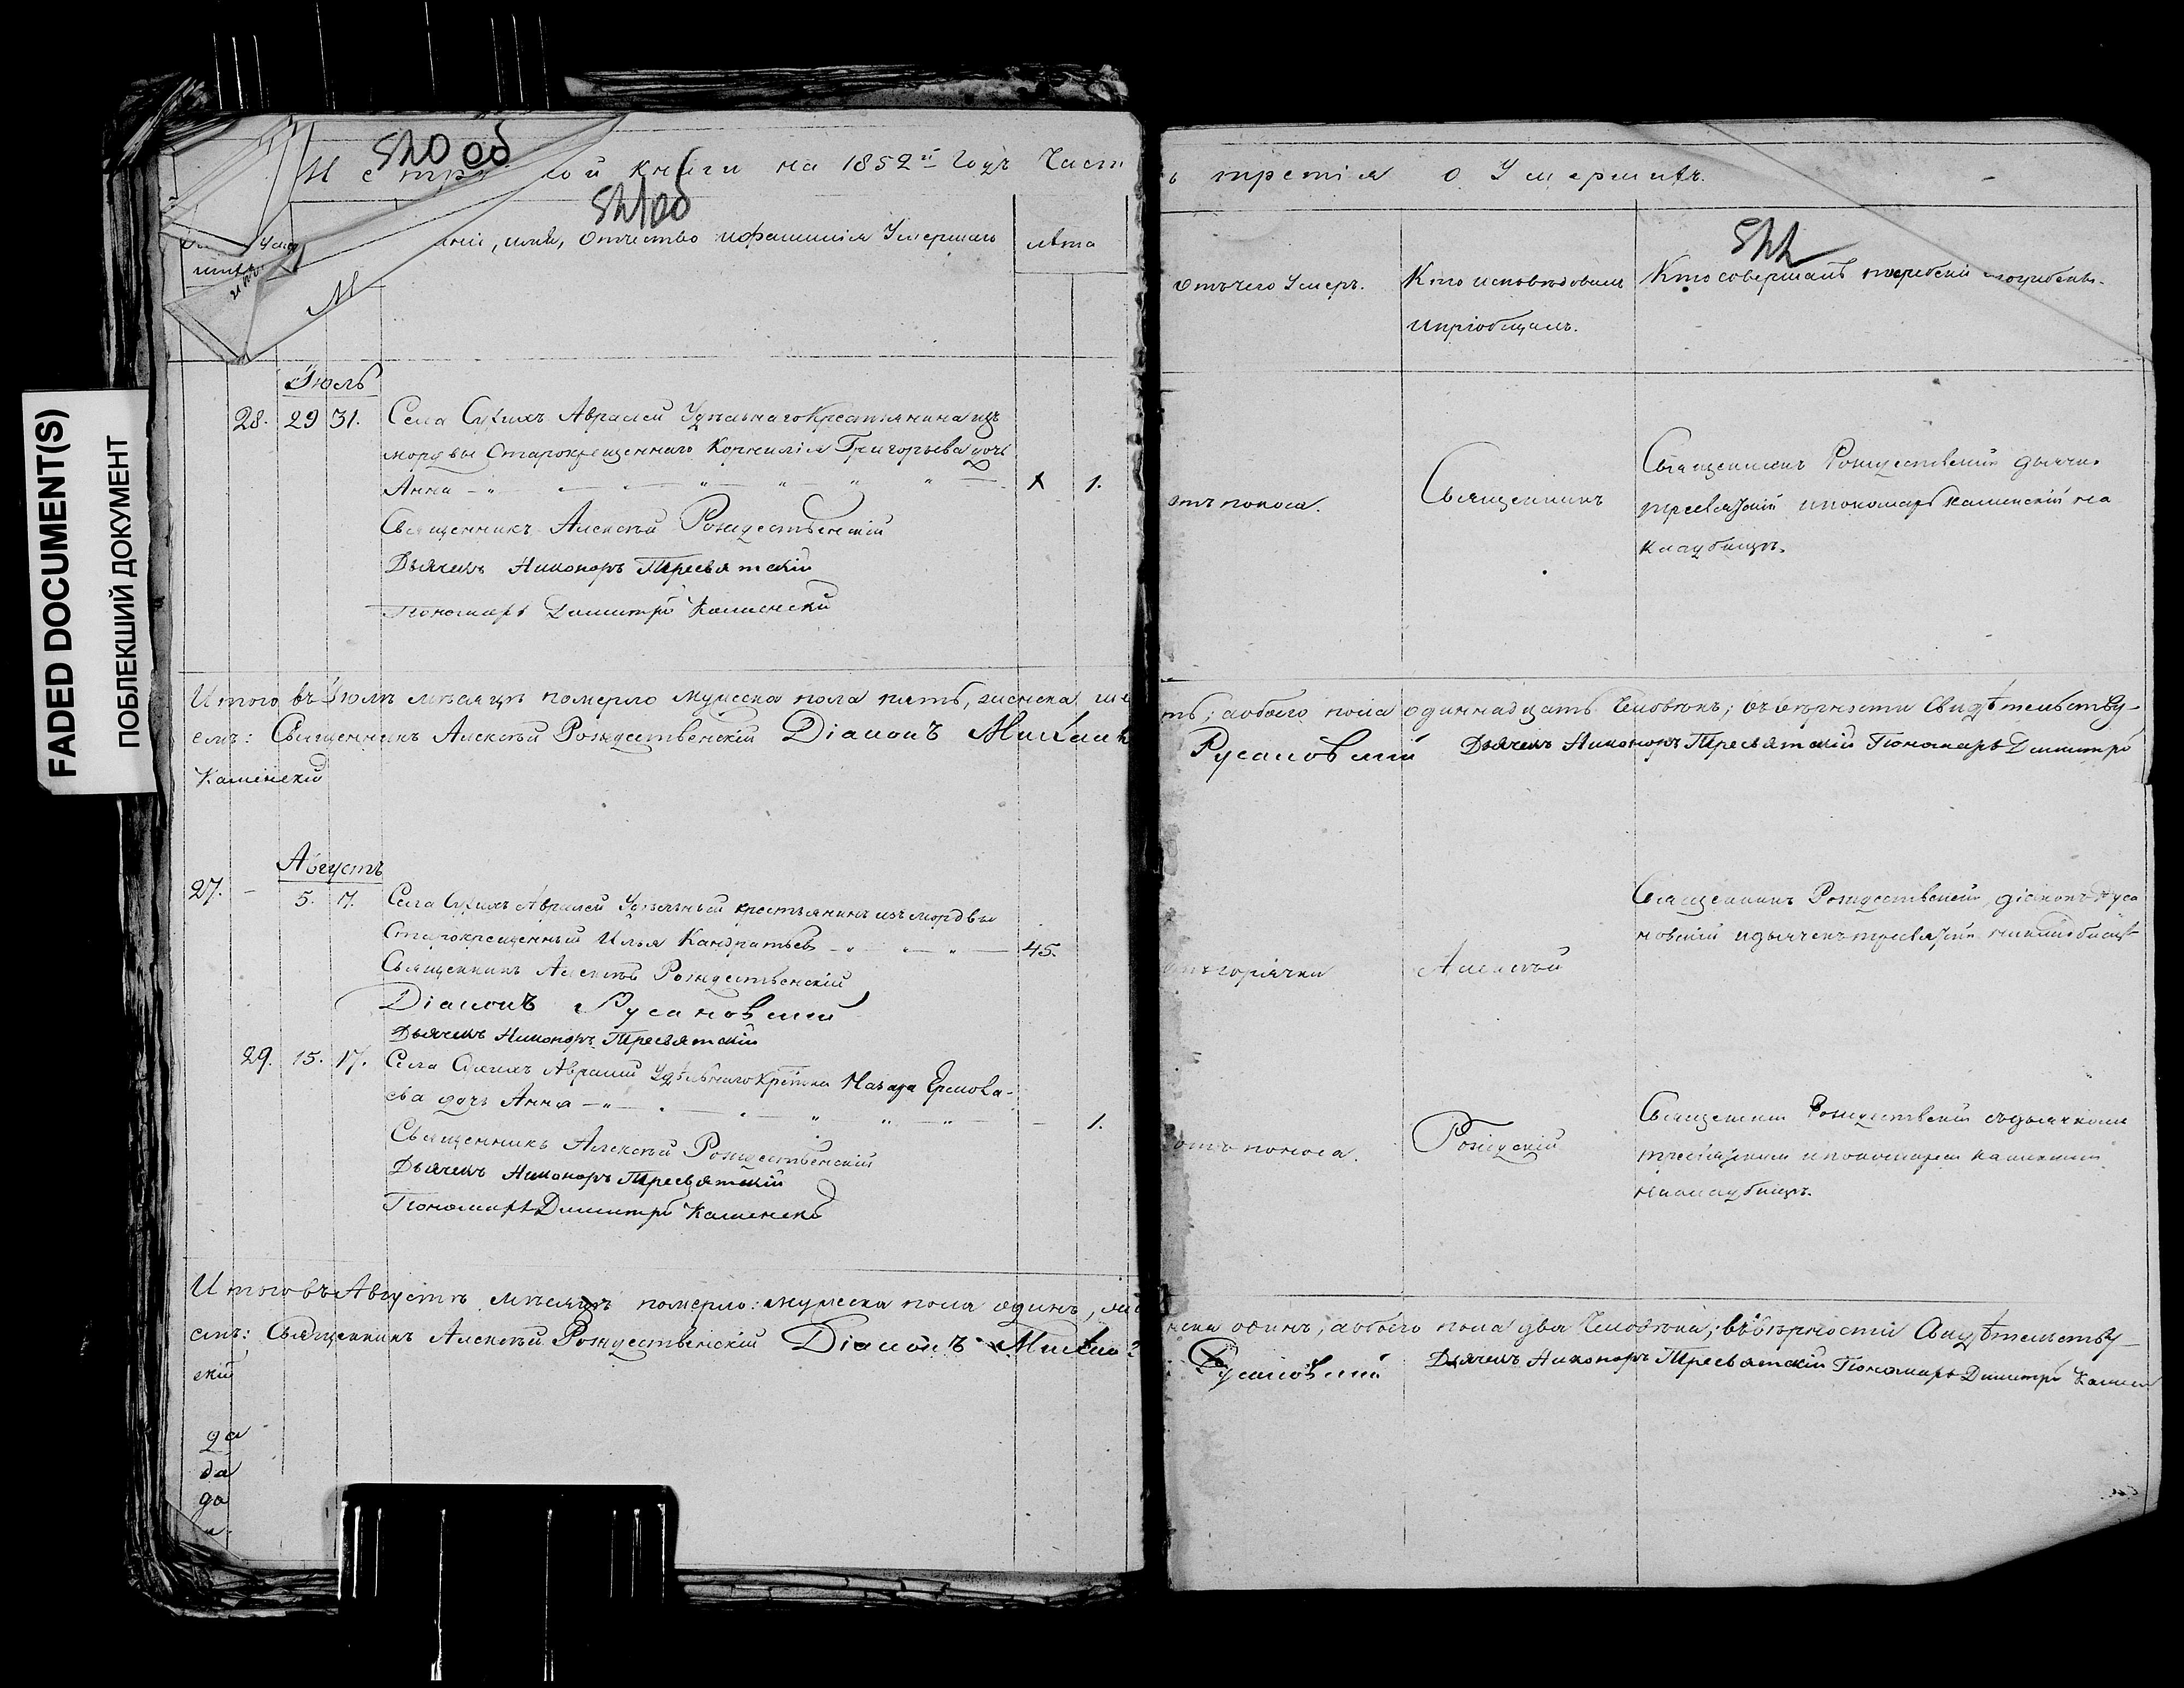 FADED DOCUMENT(S)
ПОБЛЕКШИЙ ДОКУМЕНТ
книги на 1852й Годъ Част
имя, Отчество и фамилія Умершаго
лѣта
Іюль
28. 29 31. Села Сухихъ Авралей Удѣльнаго Крестьянина изъ
мордвы Старокрещеннаго Корнилія Григорьева дочь
Анна 1.
Священникъ Алексѣй Рождественскій
Дьячекъ Никоноръ Тресвятскій
Пономарь Димитрій Каменскій
Итого въ Іюлѣ мѣсяцѣ померло мужеска пола пять, женска ше
емъ: Священникъ Алексѣй Рождественскій Діаконъ Михаил
Каменскій
Августъ
27. - 5. 7. Села Сухихъ Авралей Удѣльный крестьянинъ изъ мордвы
Старокрещенный Илья Кандратьевъ 45.
Священникъ Алексѣй Рождественскій
Діаконъ Русановскій
Дьячекъ Никоноръ Тресвятскій
29. 15. 17. Села Сухихъ Авралей Удѣльнаго Крестьна Назара Ермола-
ева дочь Анна 1.
Священникъ Алексѣй Рождественскій
Дьячекъ Никоноръ Тресвятскій
Пономарь Димитрій Каменскій
Итого въ Августѣ мѣсяцѣ померло: мужеска пола одинъ, же
емъ: Священникъ Алексѣй Рождественскій Діаконъ Михаи
скій
ь третія о Умершихъ.
отъ чего Умеръ.
Кто исповѣдовалъ
и пріобщалъ.
Кто совершалъ погребеніе
отъ поноса.
Священникъ
Священникъ Рождественскій дьячекъ
Тресвятскій и пономарь Каменскій на
кладбищѣ.
ть; а обоего пола одиннадцать Человѣкъ; въ вѣрности Свидѣтельству-
Русановскій Дьячекъ Никоноръ Тресвятскій Пономарь Димитрій
горячки
Алексѣй
Священникъ Рождественскій, діаконъ Руса
новскій и дьячекъ Тресвятскій на кладбищѣ
отъ поноса.
Рождскій
Священникъ Рождественскій съ дьячкомъ
Тресвятскимъ и пономаремъ Каменскимъ
на кладбищѣ.
нска одинъ, а обоего пола два Человѣка; въ вѣрности Свидѣтельству-
Русановскій Дьячекъ Никоноръ Тресвятскій Пономарь Димитрій Камен